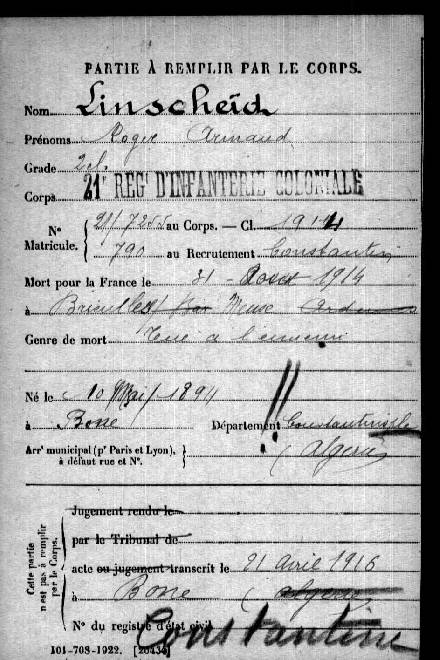 PARTIE À REMPLIR PAR LE CORPS.
Nom Linscheid
Prénoms Roger Armand
Grade 2 cl.
Corps 21e REGt D'INFANTERIE COLONIALE
N° Matricule. { 21/7255 au Corps. — Cl. 1914
790 au Recrutement Constantine
Mort pour la France le 31 - Aout 1914
à Brieulles s/ Bar Meuse Ardennes
Genre de mort Tué à l'ennemi
Né le 10 Mai 1894
à Bone Département Constantine
Arrt municipal (pr Paris et Lyon), à défaut rue et N°. } (Algérie)
Cette partie n'est pas à remplir par le Corps.
Jugement rendu le
par le Tribunal de
acte ou jugement transcrit le 21 Avril 1916
à Bone (Algérie)
N° du registre d'état civil
Constantine
101-708-1922. [26434]